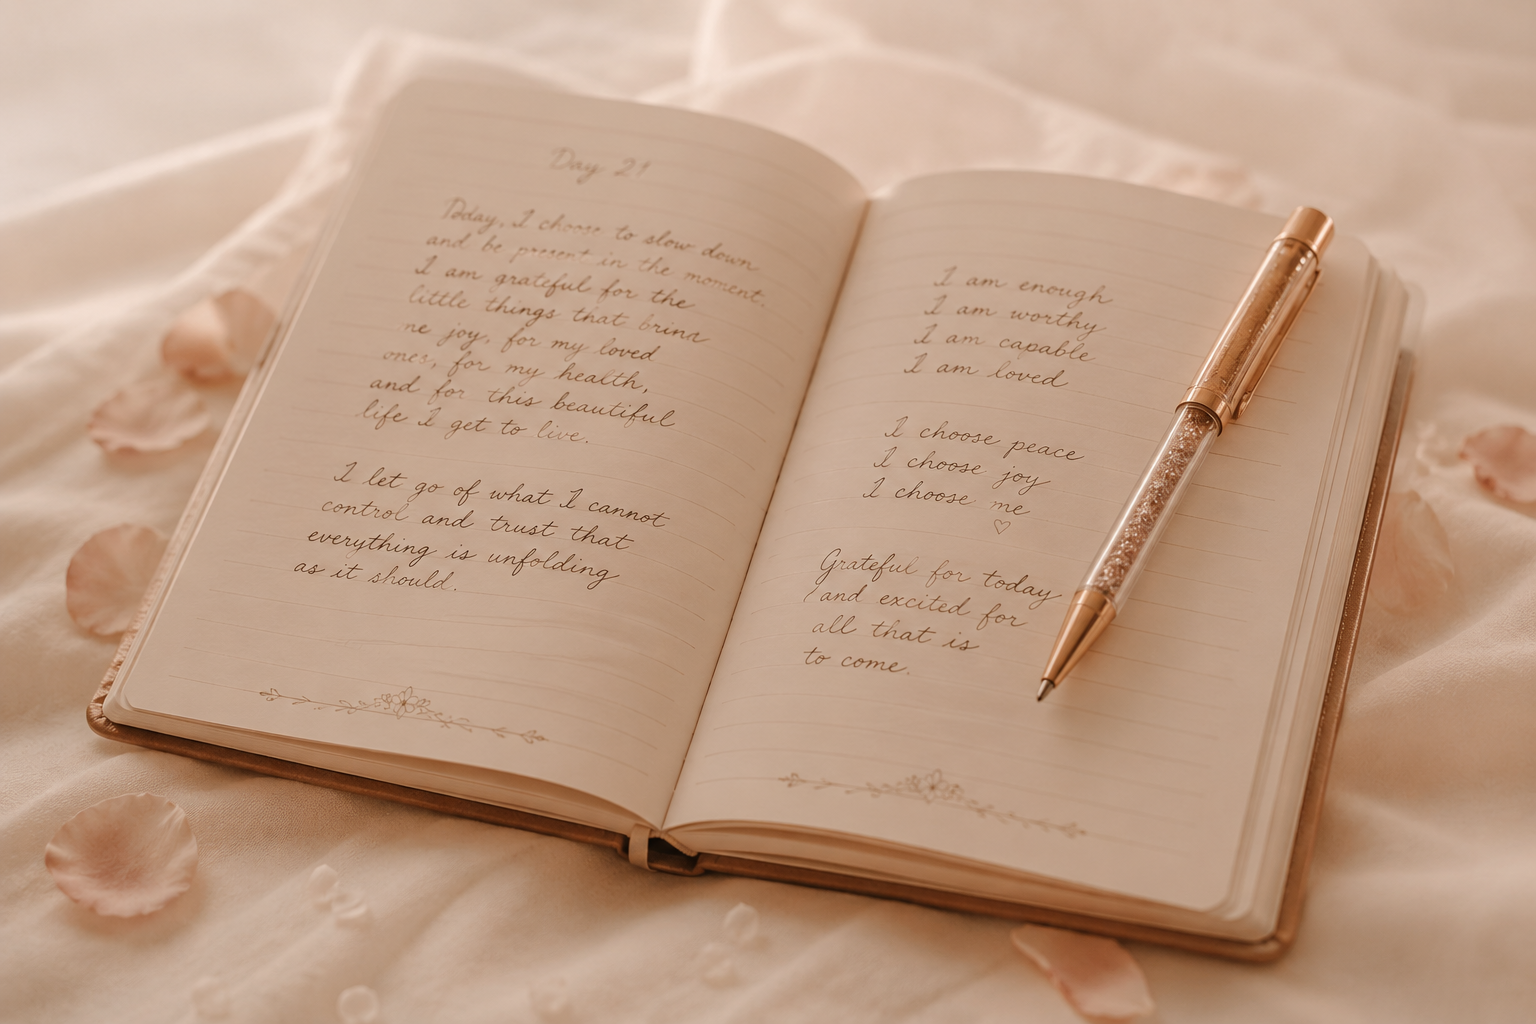 Day 21
Today, I choose to slow down
and be present in the moment.
I am grateful for the
little things that bring
me joy, for my loved
ones, for my health,
and for this beautiful
life I get to live.
I let go of what I cannot
control and trust that
everything is unfolding
as it should.
I am enough
I am worthy
I am capable
I am loved
I choose peace
I choose joy
I choose me
♡
Grateful for today
and excited for
all that is
to come.